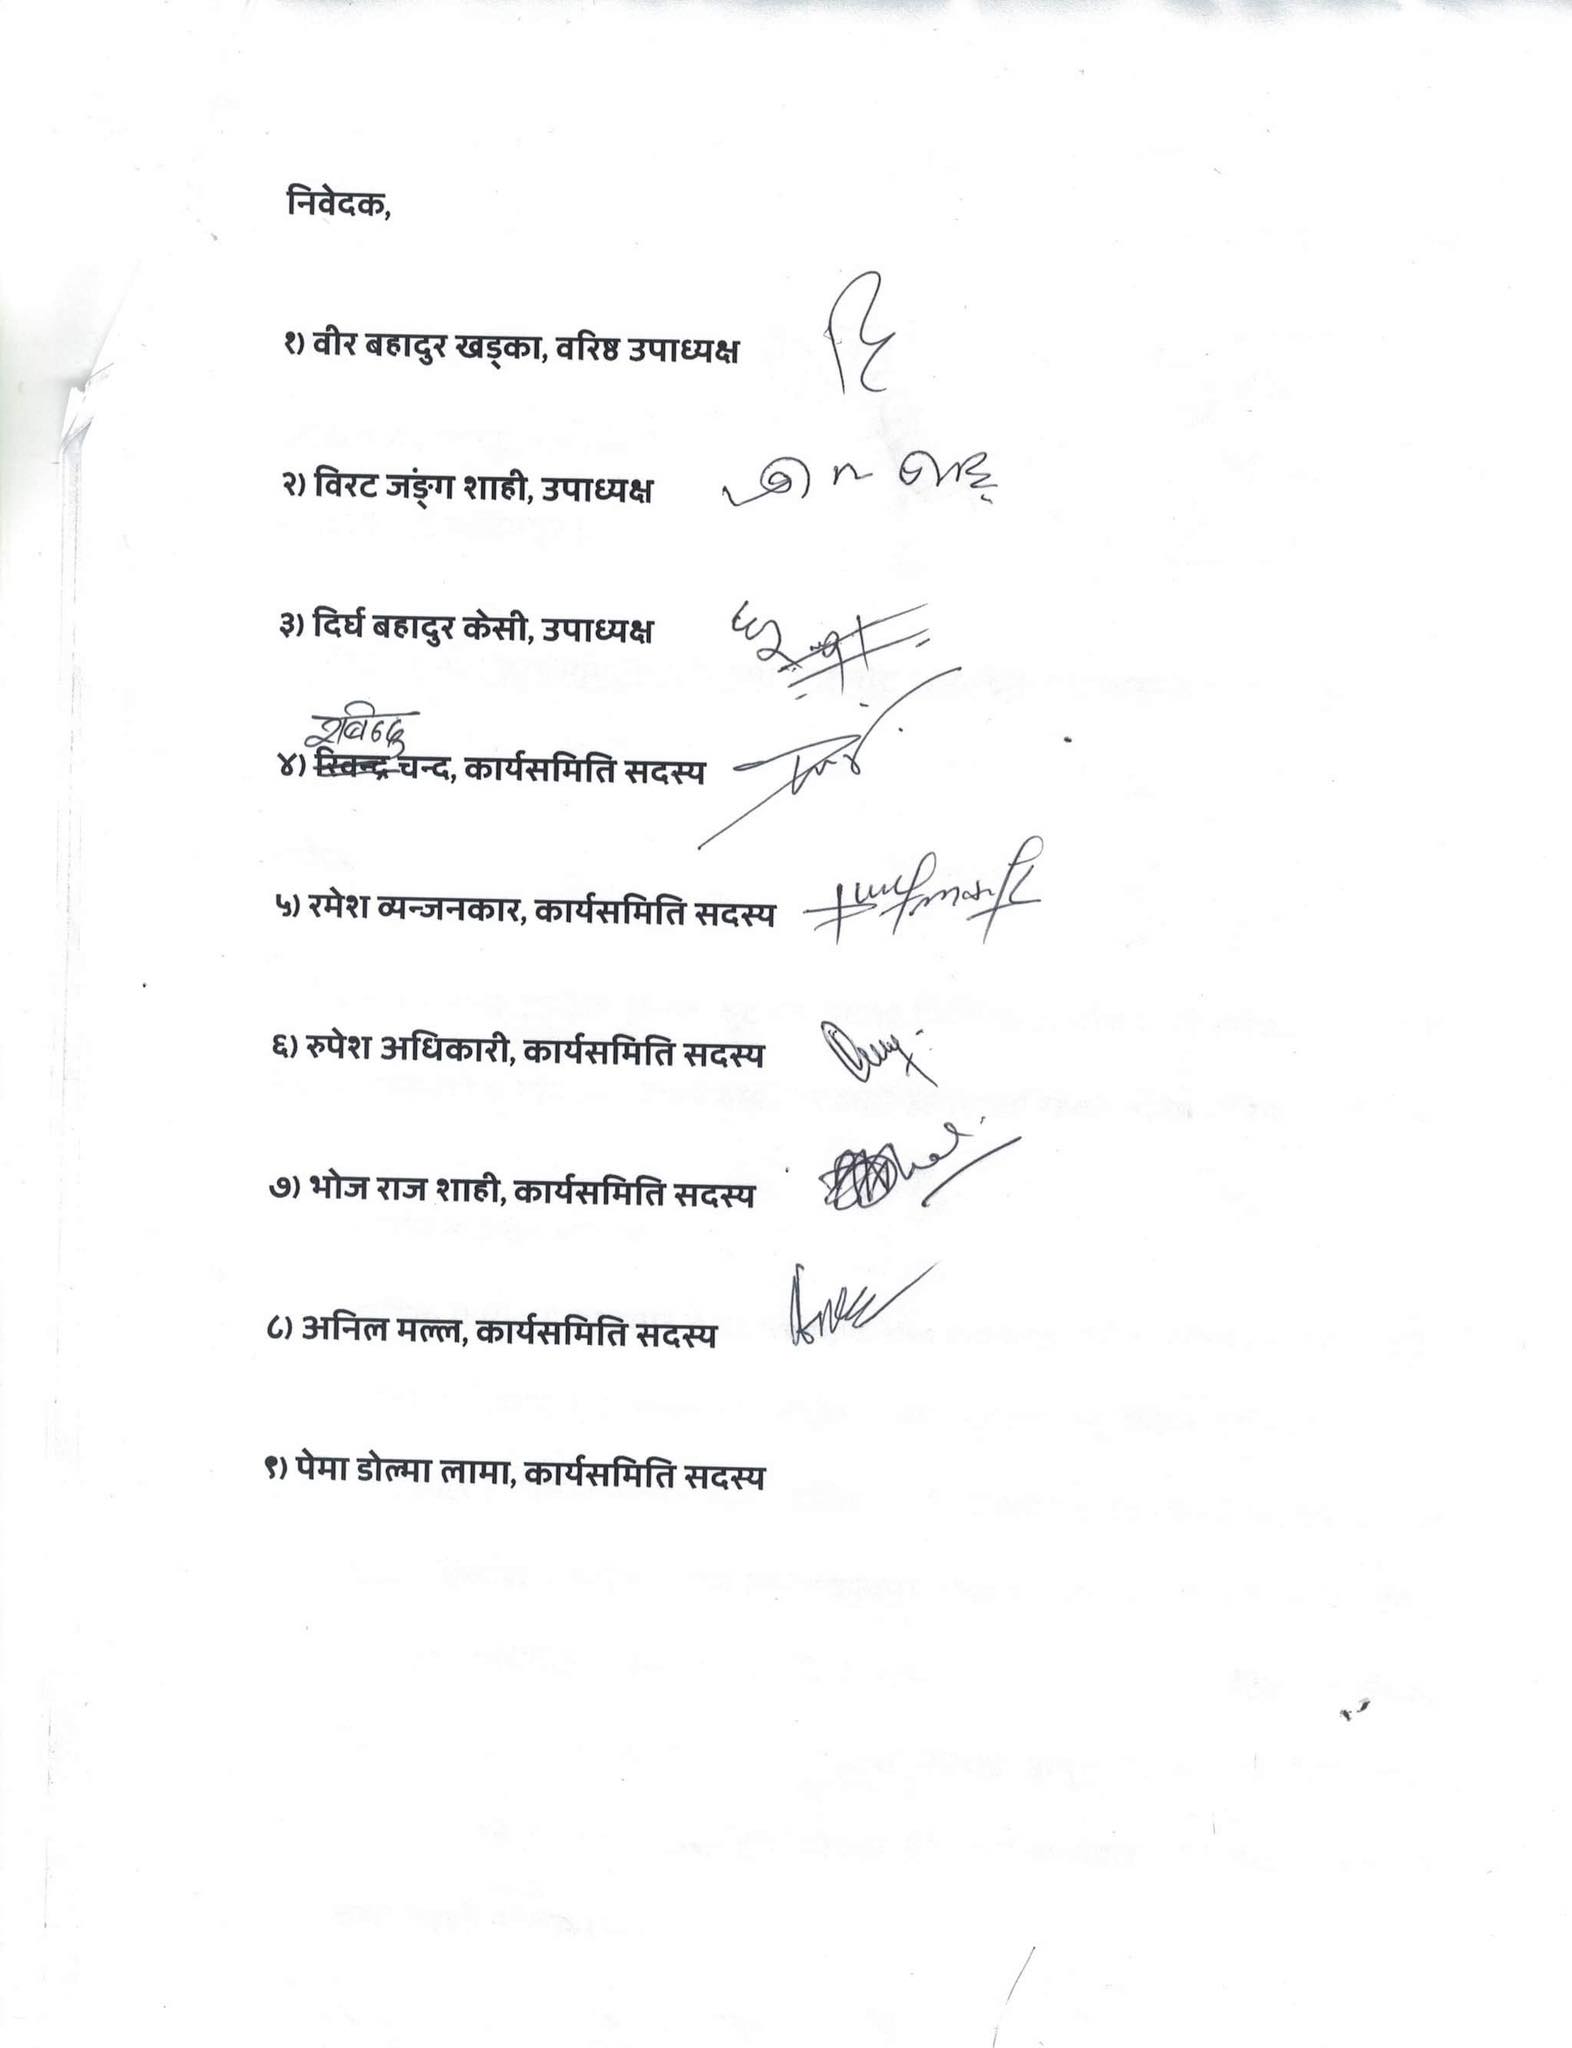 निवेदक,
१) वीर बहादुर खड्का, वरिष्ठ उपाध्यक्ष
२) विरट जंङ्ग शाही, उपाध्यक्ष
३) दिर्घ बहादुर केसी, उपाध्यक्ष
रविन्द्र
४) रिवन्द्र चन्द, कार्यसमिति सदस्य
५) रमेश व्यन्जनकार, कार्यसमिति सदस्य
६) रुपेश अधिकारी, कार्यसमिति सदस्य
७) भोज राज शाही, कार्यसमिति सदस्य
८) अनिल मल्ल, कार्यसमिति सदस्य
९) पेमा डोल्मा लामा, कार्यसमिति सदस्य